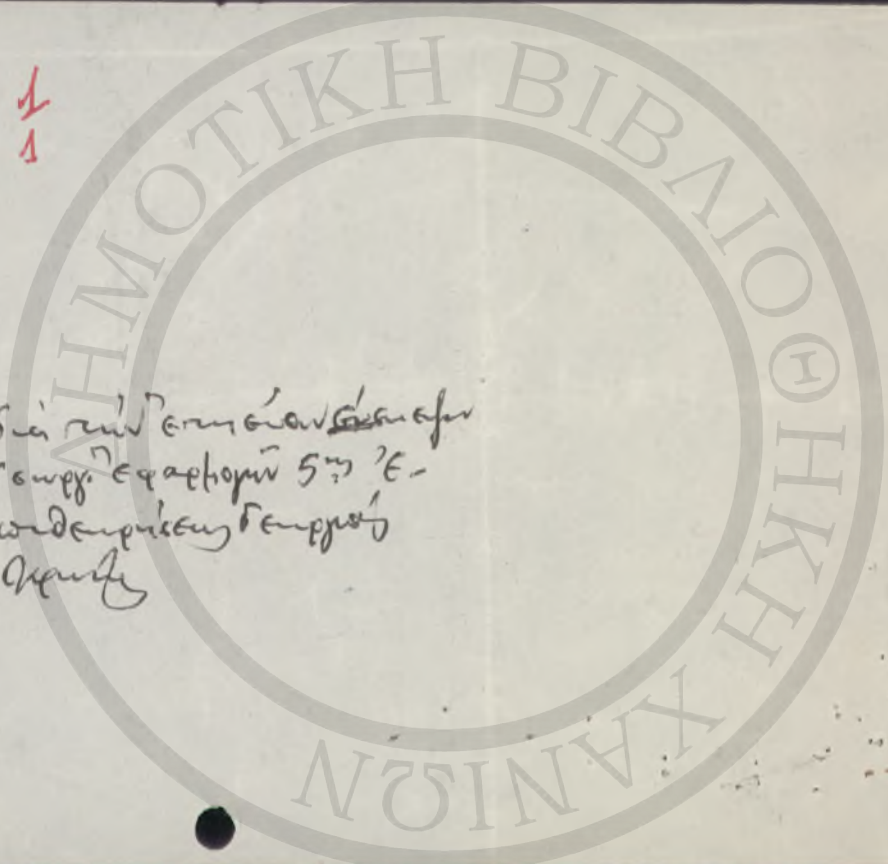 1
1
ΔΗΜΟΤΙΚΗ ΒΙΒΛΙΟΘΗΚΗ ΧΑΝΙΩΝ
διά τήν ἐτησίαν σύσκεψιν
Γεωργ. Ἐφαρμογῶν 5ης Ἐ-
πιθεωρήσεως Γεωργίας
Κρήτης